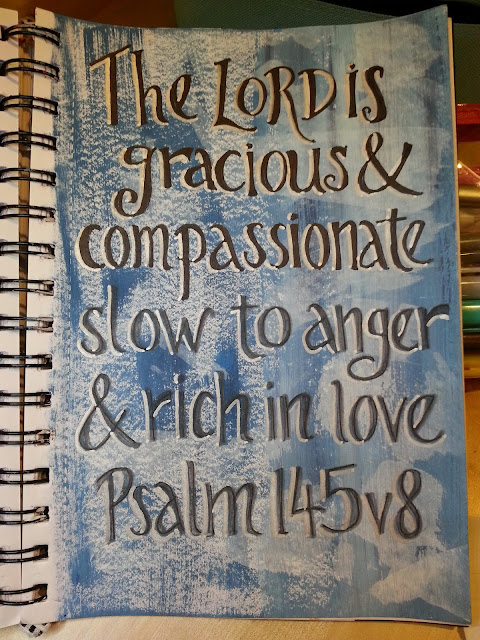 The LORD is
gracious &
compassionate
slow to anger
& rich in love
Psalm 145v8